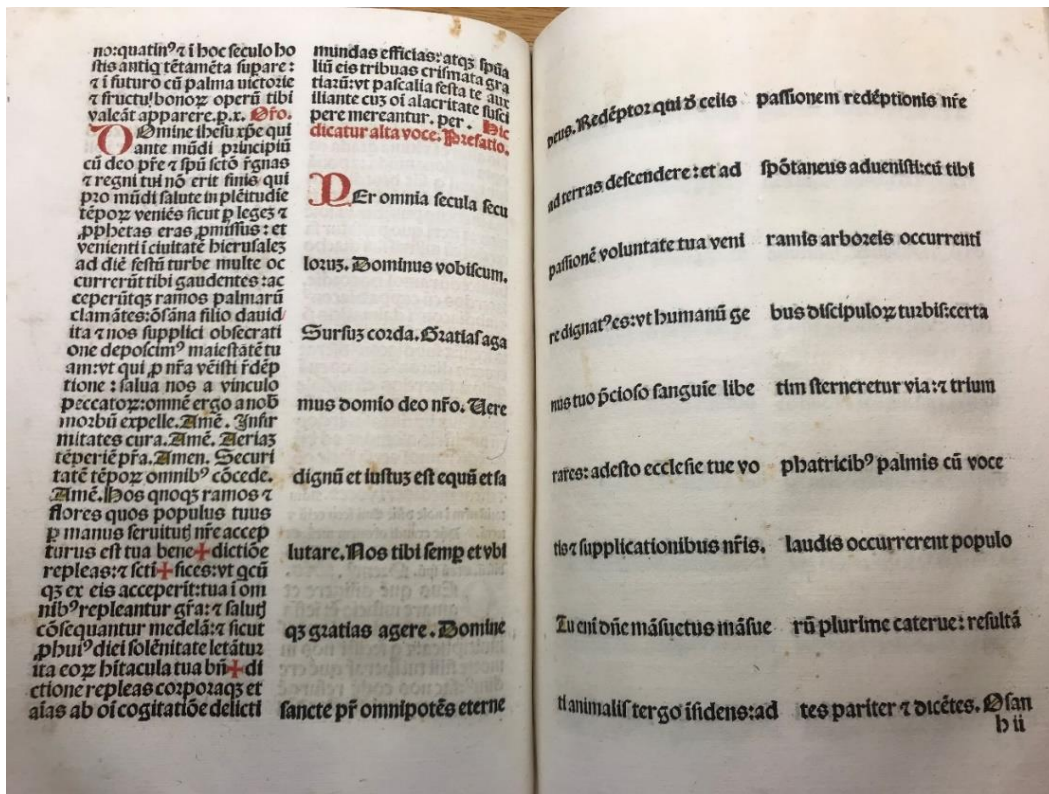 no:quatinꝰ ⁊ ī hoc seculo ho
stis antiq̄ tētamēta supare:
⁊ ī futuro cū palma victorie
⁊ fructu bonoꝝ operū tibi
valeāt apparere.p.x. Oŕo.
Domine ihesu xp̄e qui
ante mūdi principiū
cū deo pr̄e ⁊ spū sctō ŕgnas
⁊ regni tui nō erit finis qui
pro mūdi salute in plēitudīe
tēpoꝝ veniēs sicut p legeꝫ ⁊
ꝓphetas eras ꝓmissus: et
venienti ī ciuitatē hierusaleꝫ
ad diē festū turbe multe oc
currerūt tibi gaudentes: ac
ceperūtqꝫ ramos palmarū
clamātes: ōsāna filio dauid
ita ⁊ nos supplici obsecrati
one deposcimꝰ maiestatē tu
am: vt qui ꝓ nr̄a vēisti ŕdēp
tione: salua nos a vinculo
peccatoꝝ: omnē ergo a nob̄
morbū expelle. Amē. Infir
mitates cura. Amē. Aeriaꝫ
tēperiē p̄ra. Amen. Securi
tatē tēpoꝝ omnibꝰ cōcede.
Amē. Hos quoqꝫ ramos ⁊
flores quos populus tuus
ꝑ manus seruitutꝭ nr̄e accep
turus est tua bene✚dictiōe
repleas: ⁊ scti✚fices: vt q̄cū
qꝫ ex eis acceperīt: tua ī om
nibꝰ repleantur gr̄a: ⁊ salutꝭ
cōsequantur medelā: ⁊ sicut
ꝓ huiꝰ diei solēnitate letātur
ita eoꝝ hītacula tua bn̄✚di
ctione repleas corporaqꝫ et
aīas ab oī cogitatiōe delicti
mundas efficias: atqꝫ spūa
liū eis tribuas crismata gra
tiarū: vt pascalia festa te aux
iliante cuꝫ oī alacritate susci
pere mereantur. per. Hic
dicatur alta voce. Prefatio.
PEr omnia secula secu
loruꝫ. Dominus vobiscum.
Sursuꝫ corda. Gratias aga
mus domīo deo nr̄o. Uere
dignū et iustuꝫ est equū et sa
lutare. Nos tibi semꝑ et vbi
qꝫ gratias agere. Domine
sancte pr̄ omnipotēs eterne
deus. Redēptor qui ð celis
ad terras descendere: et ad
passionē voluntate tua veni
re dignatꝰ es: vt humanū ge
nus tuo p̄cioso sanguīe libe
rares: adesto ecclesie tue vo
tis ⁊ supplicationibus nr̄is.
Tu eni dn̄e māsuetus māsue
ti animalis tergo īsidens: ad
passionem redēptionis nr̄e
spōtaneus aduenisti: cū tibi
ramis arboreis occurrenti
bus discipuloꝝ turbis: certa
tim sterneretur via: ⁊ trium
phatricibꝰ palmis cū voce
laudis occurrerent populo
rū plurime caterue: resultā
tes pariter ⁊ dicētes. Osan
b ii